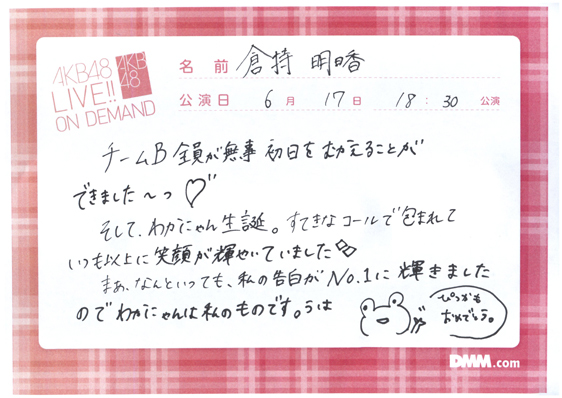 AKB48
LIVE!!
ON DEMAND
AKB
48
名 前 倉持 明日香
公演日 6 月 17 日 18 : 30 公演
チームB 全員が無事 初日をむかえることが
できました〜っ♡
そして、わかにゃん生誕。すてきなコールで包まれて
いつも以上に笑顔が輝やいていました
まぁ、なんといっても、私の告白がNo.1に輝きました
のでわかにゃんは私のものです。うは
ぴょおも
おめでとう。
DMM.com